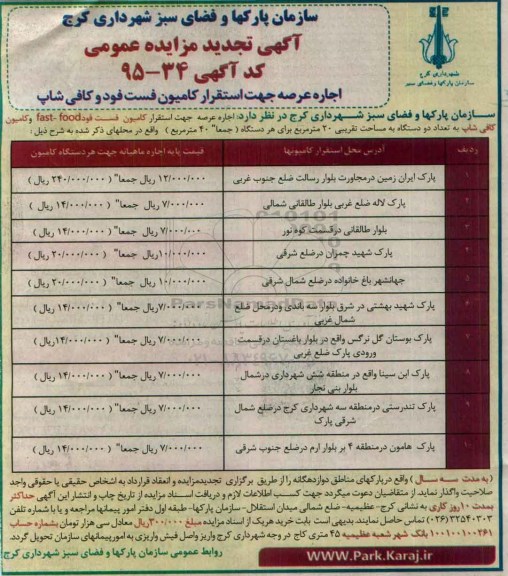 سازمان پارکها و فضای سبز شهرداری کرج
آگهی تجدید مزایده عمومی
کد آگهی ۳۴-۹۵
اجاره عرصه جهت استقرار کامیون فست فود و کافی شاپ
شهرداری کرج
سازمان پارکها و فضای سبز
سازمان پارکها و فضای سبز شهرداری کرج در نظر دارد: اجاره عرصه جهت استقرار کامیون فست فود fast-food و کامیون
کافی شاپ به تعداد دو دستگاه به مساحت تقریبی ۲۰ مترمربع برای هر دستگاه ( جمعا" ۴۰ مترمربع ) واقع در محلهای ذکر شده به شرح ذیل :
ردیف آدرس محل استقرار کامیونها قیمت پایه اجاره ماهیانه جهت هر دستگاه کامیون
۱ پارک ایران زمین در مجاورت بلوار رسالت ضلع جنوب غربی ۱۲/۰۰۰/۰۰۰ ریال جمعا" ( ۲۴۰/۰۰۰/۰۰۰ ریال )
۲ پارک لاله ضلع غربی بلوار طالقانی شمالی ۷/۰۰۰/۰۰۰ ریال جمعا" ( ۱۴/۰۰۰/۰۰۰ ریال )
۳ بلوار طالقانی در قسمت کوه نور ۷/۰۰۰/۰۰۰ ریال جمعا" ( ۱۴/۰۰۰/۰۰۰ ریال )
۴ پارک شهید چمران در ضلع شرقی ۱۰/۰۰۰/۰۰۰ ریال جمعا" ( ۲۰/۰۰۰/۰۰۰ ریال )
۵ جهانشهر باغ خانواده در ضلع شمال شرقی ۱۰/۰۰۰/۰۰۰ ریال جمعا" ( ۲۰/۰۰۰/۰۰۰ ریال )
۶ پارک شهید بهشتی در شرق بلوار سه باندی و در محل ضلع
شمال غربی ۷/۰۰۰/۰۰۰ ریال جمعا" ( ۱۴/۰۰۰/۰۰۰ ریال )
۷ پارک بوستان گل نرگس واقع در بلوار باغستان در قسمت
ورودی پارک ضلع غربی ۷/۰۰۰/۰۰۰ ریال جمعا" ( ۱۴/۰۰۰/۰۰۰ ریال )
۸ پارک ابن سینا واقع در منطقه شش شهرداری در شمال
بلوار بنی نجار ۷/۰۰۰/۰۰۰ ریال جمعا" ( ۱۴/۰۰۰/۰۰۰ ریال )
۹ پارک تندرستی در منطقه سه شهرداری کرج در ضلع شمال
شرقی پارک ۷/۰۰۰/۰۰۰ ریال جمعا" ( ۱۴/۰۰۰/۰۰۰ ریال )
۱۰ پارک هامون در منطقه ۴ بر بلوار ارم در ضلع جنوب شرقی ۷/۰۰۰/۰۰۰ ریال جمعا" ( ۱۴/۰۰۰/۰۰۰ ریال )
( به مدت سه سال ) واقع در پارکهای مناطق دوازدهگانه را از طریق برگزاری تجدید مزایده و انعقاد قرارداد به اشخاص حقیقی یا حقوقی واجد
صلاحیت واگذار نماید از متقاضیان دعوت میگردد جهت کسب اطلاعات لازم و دریافت اسناد مزایده از تاریخ چاپ و انتشار این آگهی حداکثر
بمدت ۱۰ روز کاری به نشانی کرج- عظیمیه- ضلع شمالی میدان استقلال- سازمان پارکها- طبقه اول دفتر امور پیمانها مراجعه و یا با شماره تلفن
۳۲۵۴۰۳۰۳ (۰۲۶) تماس حاصل نمایند. بدیهی است بابت خرید هریک از اسناد مزایده مبلغ ۳۰۰/۰۰۰ ریال معادل سی هزار تومان بشماره حساب
۱۰۰۱۰۰۱۰۰۲۶۱ بانک شهر شعبه عظیمیه ۴۵ متری کاج در وجه شهرداری کرج واریز و اصل فیش واریزی به امور پیمانهای سازمان تحویل گردد.
روابط عمومی سازمان پارکها و فضای سبز شهرداری کرج
WWW.Park.Karaj.ir